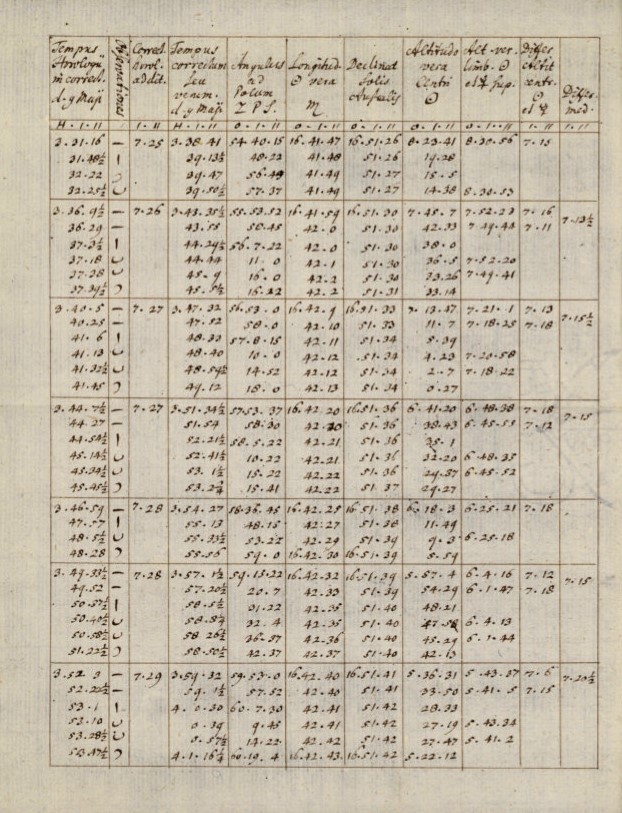 Tempus Horologii incorrect. d. 9 Maji | Observationes | Correct. horol. addit. | Tempus correctum seu verum. d. 9 Maji | Angulus ad Polum Z P S. | Longitud. ☉ vera | Declinat Solis Australis | Altitudo vera Centri ☉ | Alt. ver. limb. ☉ el ☿ sup. | Differ Altit centr. ☉ el ☿ | Differ. med.
H · I · II | I · II | H · I · II | o · I · II | o · I · II | o · I · II | o · I · II | o · I · II | I · II | I · II
3·31·16 — 7·25 3·38·41 54·40·15 16·41·47 16·51·26 8·23·41 8·30·56 7·15
31·48½ | 39·13½ 48·22 41·48 51·26 19·28
32·22 39·47 56·49 41·49 51·27 15·5
32·25½ 39·50½ 57·37 41·49 51·27 14·38 8·30·53
3·36·9½ — 7·26 3·43·35½ 55·53·52 16·41·59 16·51·30 7·45·7 7·52·23 7·16 7·13½
36·29 — 43·55 58·45 42·0 51·30 42·33 7·49·44 7·11
37·3½ | 44·29½ 56·7·22 42·0 51·30 38·0
37·18 44·44 11·0 42·1 51·30 36·5 7·52·20
37·38 45·9 16·0 42·2 51·30 33·26 7·49·41
37·39½ 45·5½ 16·22 42·2 51·31 33·14
3·40·5 — 7·27 3·47·32 56·53·0 16·42·9 16·51·33 7·13·47 7·21·1 7·13 7·15½
40·25 — 47·52 58·0 42·10 51·33 11·7 7·18·25 7·18
41·6 | 48·33 57·8·15 42·11 51·34 5·39
41·13 48·40 10·0 42·12 51·34 4·23 7·20·58
41·32½ 48·59½ 14·52 42·12 51·34 2·7 7·18·22
41·45 49·12 18·0 42·13 51·34 0·27
3·44·7½ — 7·27 3·51·34½ 57·53·37 16·42·20 16·51·36 6·41·20 6·48·38 7·18 7·15
44·27 — 51·54 58·30 42·20 51·36 38·43 6·45·55 7·12
44·54½ | 52·21½ 58·5·22 42·21 51·36 35·1
45·14½ 52·41½ 10·22 42·21 51·36 32·20 6·48·35
45·34½ 53·1½ 15·22 42·22 51·36 29·37 6·45·52
45·45½ 15·41 42·22 51·37 29·27
3·46·59 — 7·28 3·54·27 58·36·45 16·42·25 16·51·38 6·18·3 6·25·21 7·18
47·57 | 55·13 48·15 42·27 51·38 11·49
48·5½ 55·33½ 53·22 42·29 51·39 9·3 6·25·18
48·28 55·56 59·0 16·42·30 16·51·39 5·59
3·49·33½ — 7·28 3·57·1½ 59·15·22 16·42·32 16·51·39 5·57·4 6·4·16 7·12 7·15
49·52 — 57·20½ 20·7 42·33 51·39 54·29 6·1·47 7·18
50·37½ | 58·5½ 31·22 42·35 51·40 48·21
50·40½ 32·4 42·35 51·40 47·58 6·4·13
50·58½ 58·26½ 36·37 42·36 51·40 45·29 6·1·44
51·22½ 58·50½ 42·37 42·37 51·40 42·13
3·52·3 — 7·29 3·59·32 59·53·0 16·42·40 16·51·41 5·36·31 5·43·37 7·6 7·20½
52·22½ — 59·1½ 57·52 42·40 51·41 33·50 5·41·5 7·15
53·1 | 4·0·30 60·7·30 42·41 51·42 28·33
53·10 0·39 9·45 42·41 51·42 27·19 5·43·34
53·28½ 0·57½ 14·22 42·42 51·42 27·47 5·41·2
53·47½ 4·1·16¼ 60·19·4 16·42·43 16·51·42 5·22·12